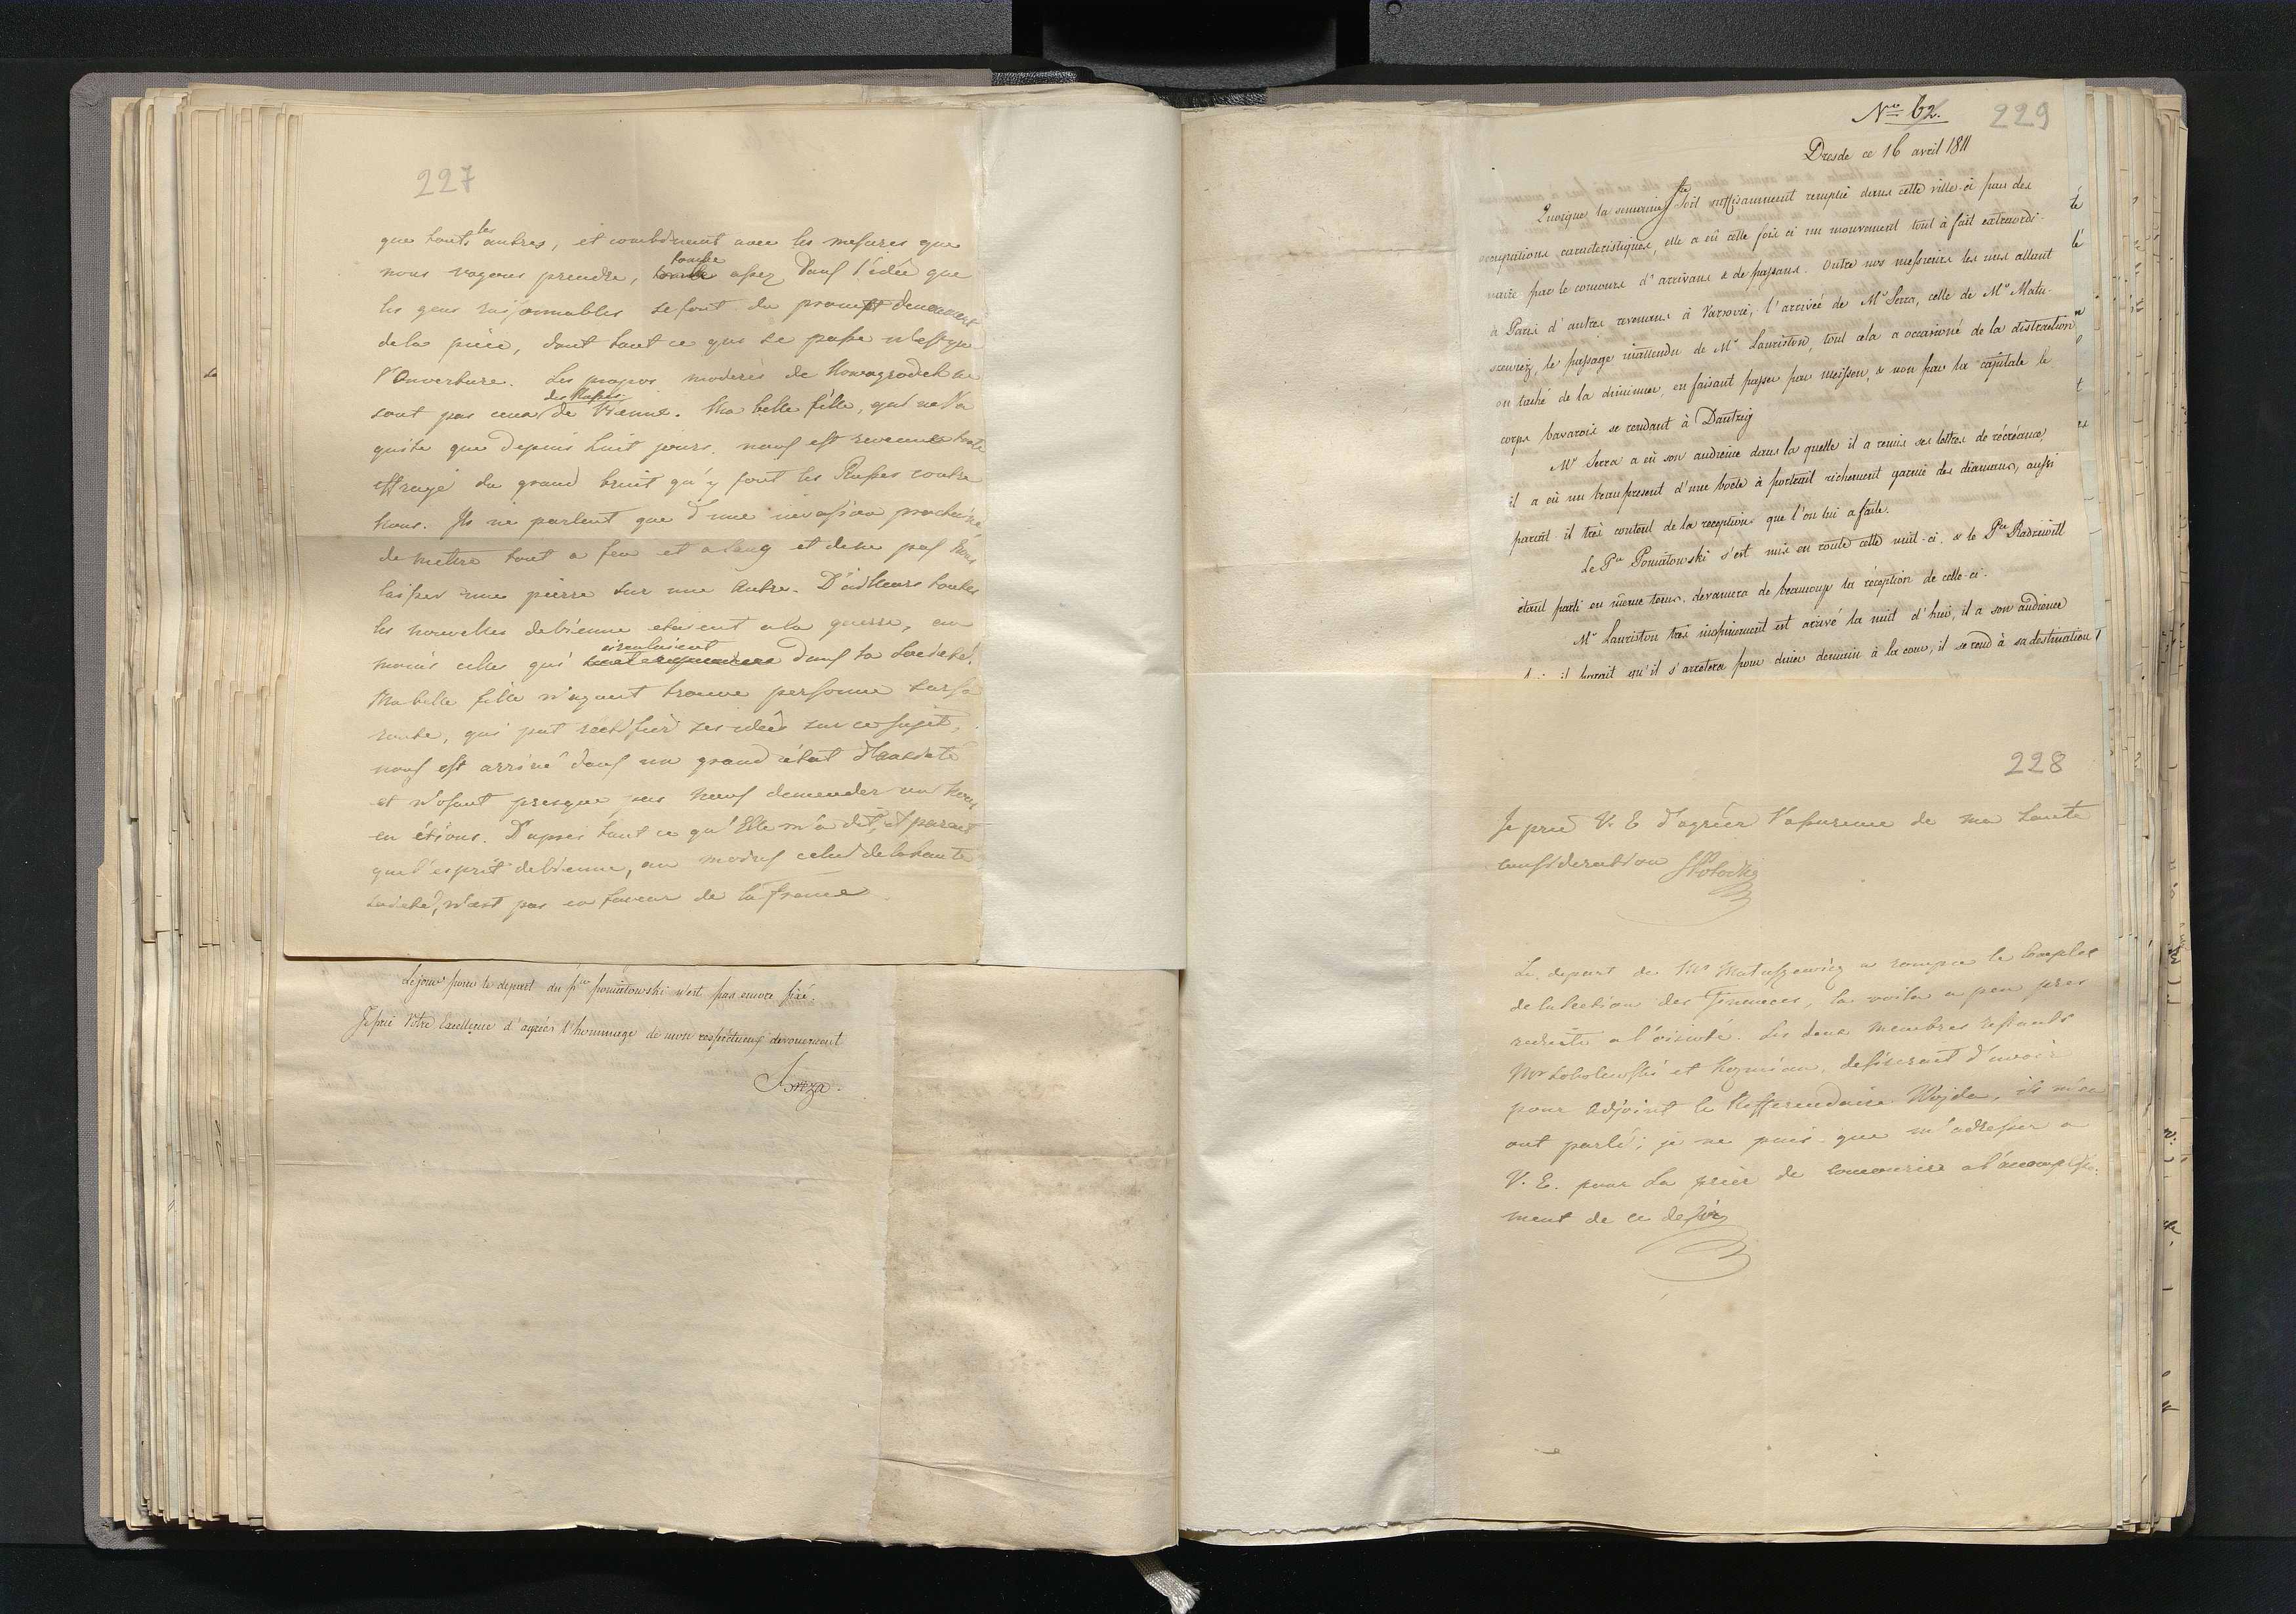 227
que touts les autres, et combinent avec les mesures que
nous voyons prendre, tombe assez dans l'idée que
les gens raisonnables se font du prompt denouement
de la piece, dont tout ce qui se passe n'est que
l'ouverture. Les propos moderés de Nowagrodek ne
sont pas ceux des Russes de Vienne. Ma belle fille, qui ne l'a
quité que depuis huit jours, nous est revenue toute
effrayé du grand bruit qu'y font les Russes contre
nous. Ils ne parlent que d'une invasion prochaine
de mettre tout a feu et a sang et de ne pas nous
laisser une pierre sur une autre. D'ailleurs toutes
les nouvelles de Vienne etaient a la guerre, au
moins celles qui circulaient dans la Societé.
Ma belle fille n'ayant trouvé personne sur sa
route, qui put rectifier ses idées sur ce sujet,
nous est arrivé dans un grand état d'anxieté
et n'osant presque pas nous demander où nous
en étions. D'apres tout ce qu'Elle m'a dit, il parait
que l'esprit de Vienne, au moins celui de la haute
societé, n'est pas en faveur de la france
Le jour pour le depart du pce poniatowski n'est pas encore fixé.
Je prie Votre Excellence d'agréer l'hommage de mon respectueux devouement
No 62. 229
Dresde ce 16 avril 1811
Quoique la semaine Ste soit suffisamment remplie dans cette ville-ci par des
occupations caracteristiques, elle a eû cette fois ci un mouvement tout à fait extraordi-
naire par le concours d'arrivans & de passans. Outre nos messieurs les uns allant
à Paris d'autres revenans à Varsovie, l'arrivée de Mr Serra, celle de Mr Matu-
szewicz, le passage inattendu de Mr Lauriston, tout cela a occasioné de la distraction
on taché de la diminuer, en faisant passer par meissen, & non par la capitale le
corps bavarois se rendant à Dantzig
Mr Serra a eû son audience dans la quelle il a remis ses lettres de récréance,
il a eû un beau present d'une boete à portrait richement garnie des diamans, aussi
parait il très content de la reception que l'on lui a faite.
Le Pce Poniatowski s'est mis en route cette nuit-ci, & le Pce Radziwill
étant parti en même tems, devancera de beaucoup la réception de celle-ci.
Mr Lauriston très inopinement est arrivé la nuit d'hier, il a son audience
il parait qu'il s'arretera pour diner demain à la cour, il se rend à sa destination
228
Je prie V. E d'agréer l'assurance de ma haute
consideration SPotocki
Le depart de Mr Matuszewicz a rompu le complet
de la section des finances, la voila a peu pres
reduite a l'oisiveté. Les deux membres restants
Mrs Sobolewski et Kozmian, desireraient d'avoir
pour adjoint le Refferendaire Woyda, ils m'en
ont parlé; je ne puis que m'adresser a
V. E. pour La prier de concourrir a l'accomplisse-
ment de ce desir